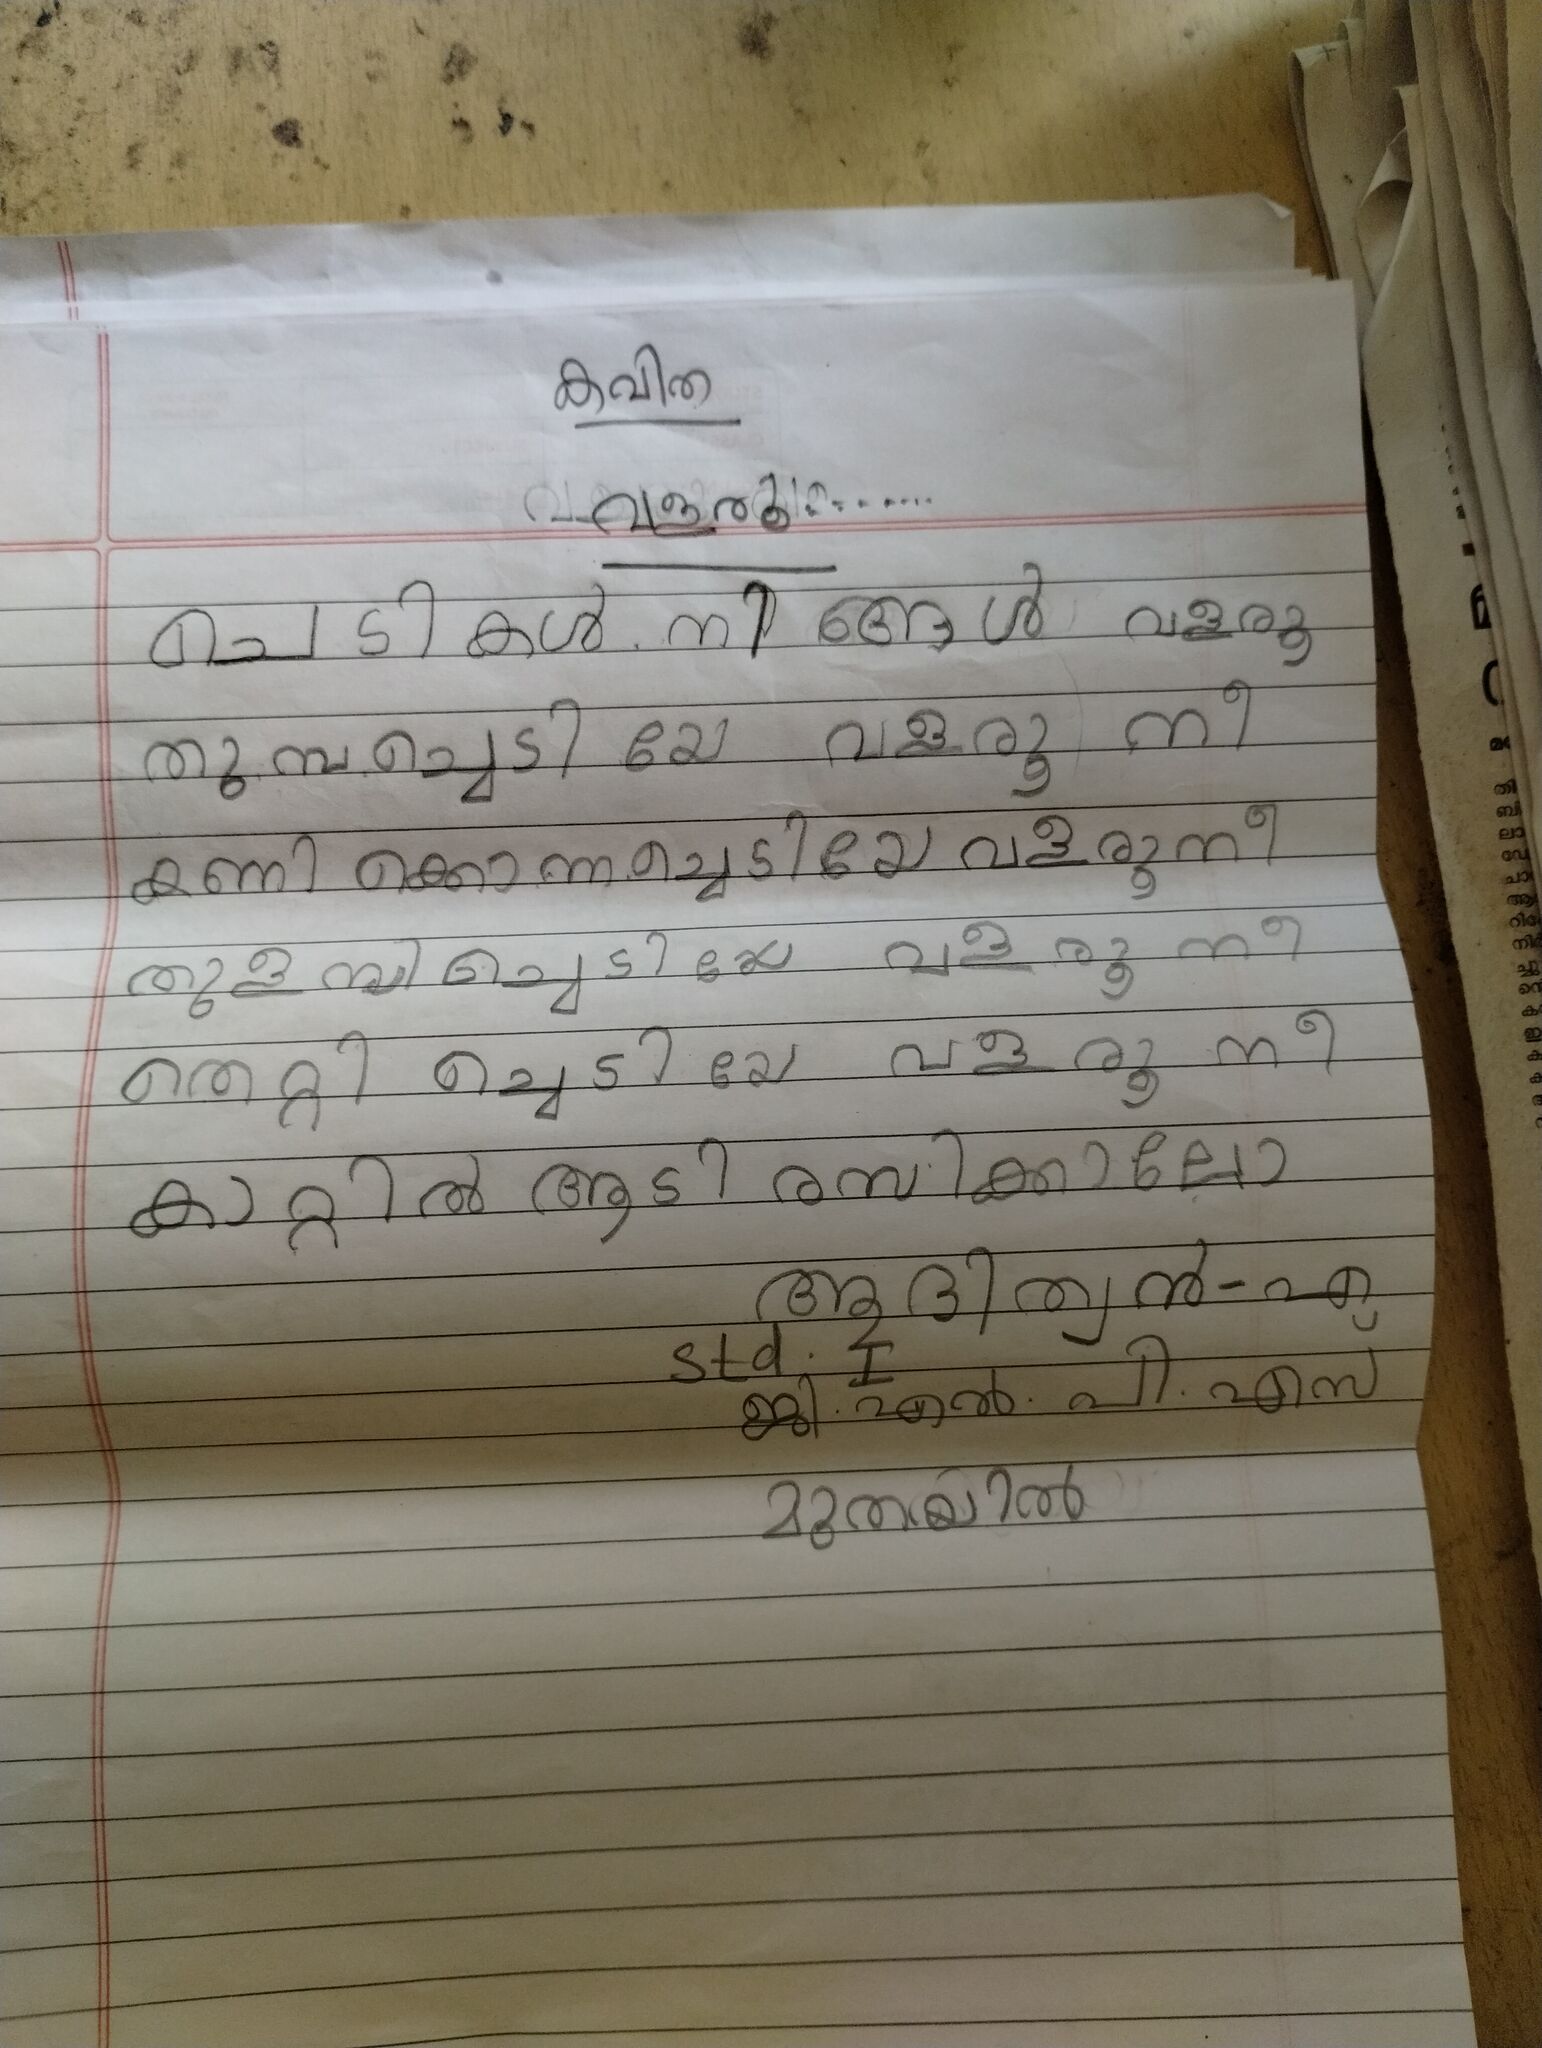 കവിത
വളരൂ........
ചെടികൾ നിങ്ങൾ വളരൂ
തുമ്പച്ചെടിയേ വളരൂ നീ
കണിക്കൊന്നച്ചെടിയേ വളരൂ നീ
തുളസിച്ചെടിയേ വളരൂ നീ
തെറ്റിച്ചെടിയേ വളരൂ നീ
കാറ്റിൽ ആടി രസിക്കാലോ
ആദിത്യൻ-എ
std. I
ജി.എൽ.പി.എസ്
മുതയിൽ